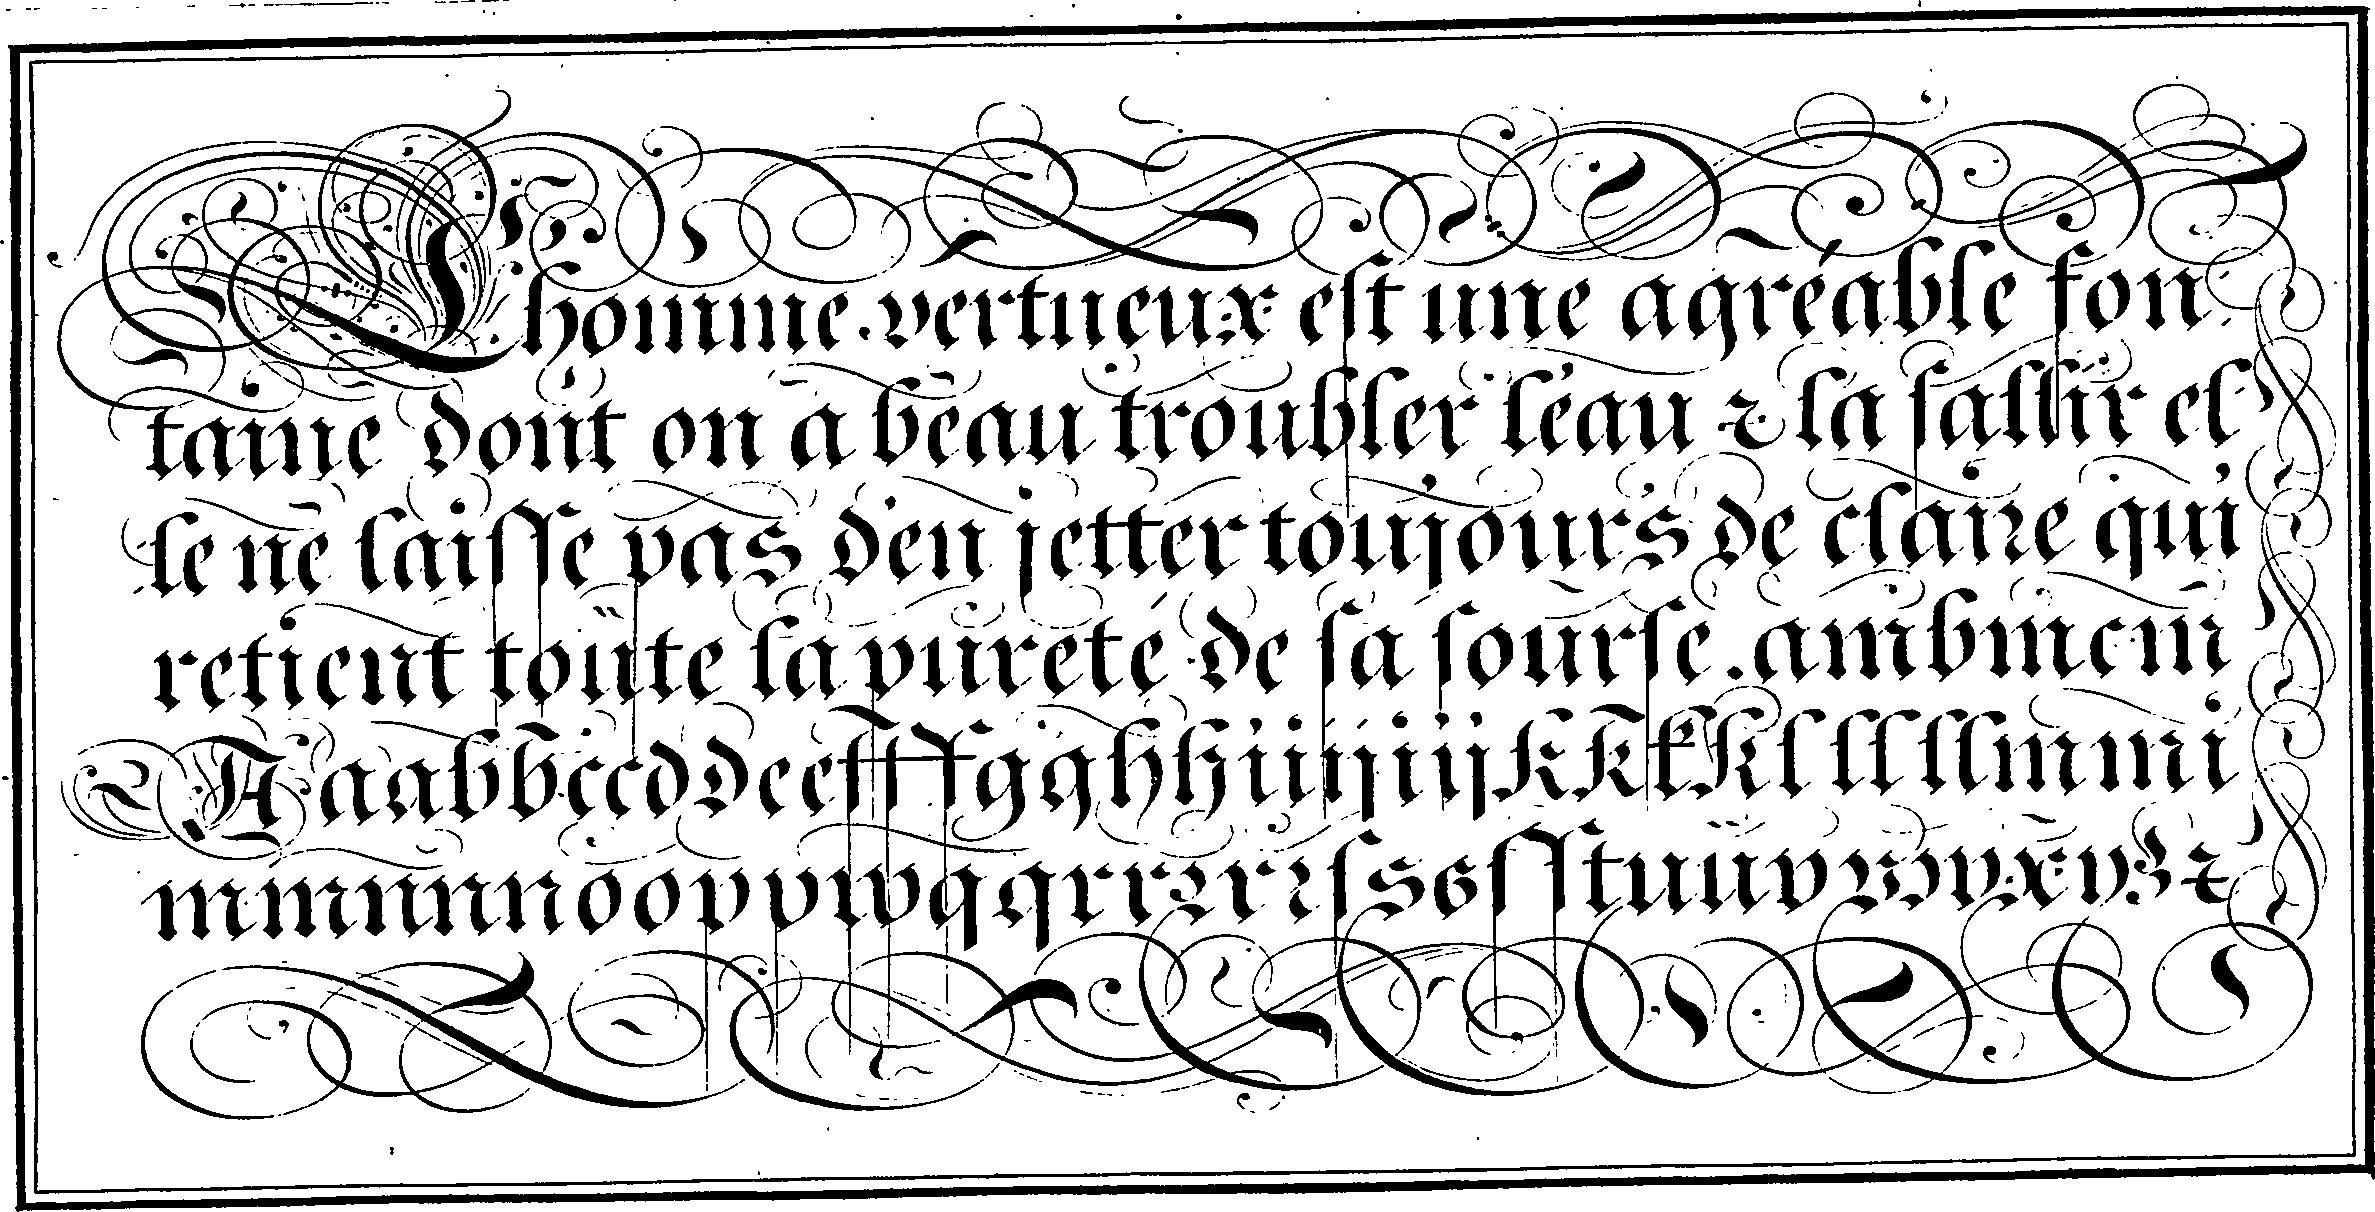 Lhomme vertueux est une agréable fon
taine dont on a beau troubler léau & la sallir el
le ne laisse pas d'en jetter toujours de claire qui
retient toute la pureté de sa sourse. ambmcm
A aabbccddeeffffgghhiijijijkkkkllllllmmi
mmnnnoopvwqqrrrrrsssssstuuvwyxyz&